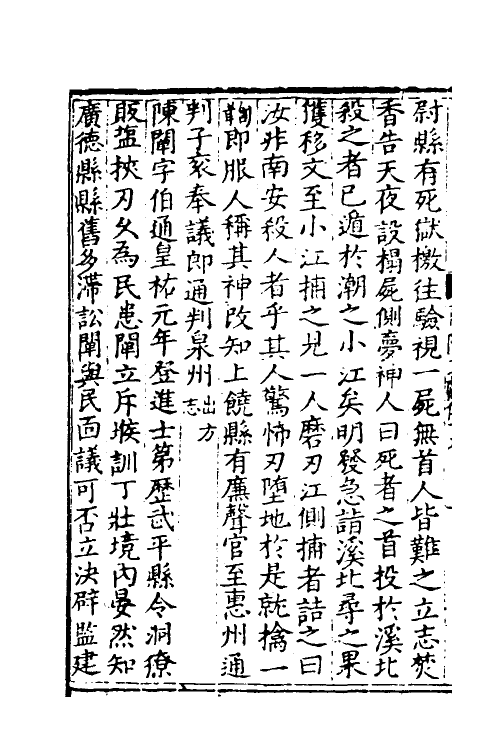 尉縣有死獄檄往驗視一屍無首人皆難之立志焚
香告天夜設榻屍側夢神人曰死者之首投於溪北
殺之者已遁於潮之小江矣明發急詣溪北尋之果
獲移文至小江捕之見一人磨刃江側捕者詰之曰
汝非南安殺人者乎其人驚怖刃墮地於是就擒一
鞫即服人稱其神改知上饒縣有廉聲官至惠州通
判子亥奉議郎通判泉州出方志
陳闡字伯通皇祐元年登進士第歷武平縣令洞獠
販塩挾刃久為民患闡立斥堠訓丁壯境內晏然知
廣德縣縣舊多滯訟闡與民面議可否立決辟監建